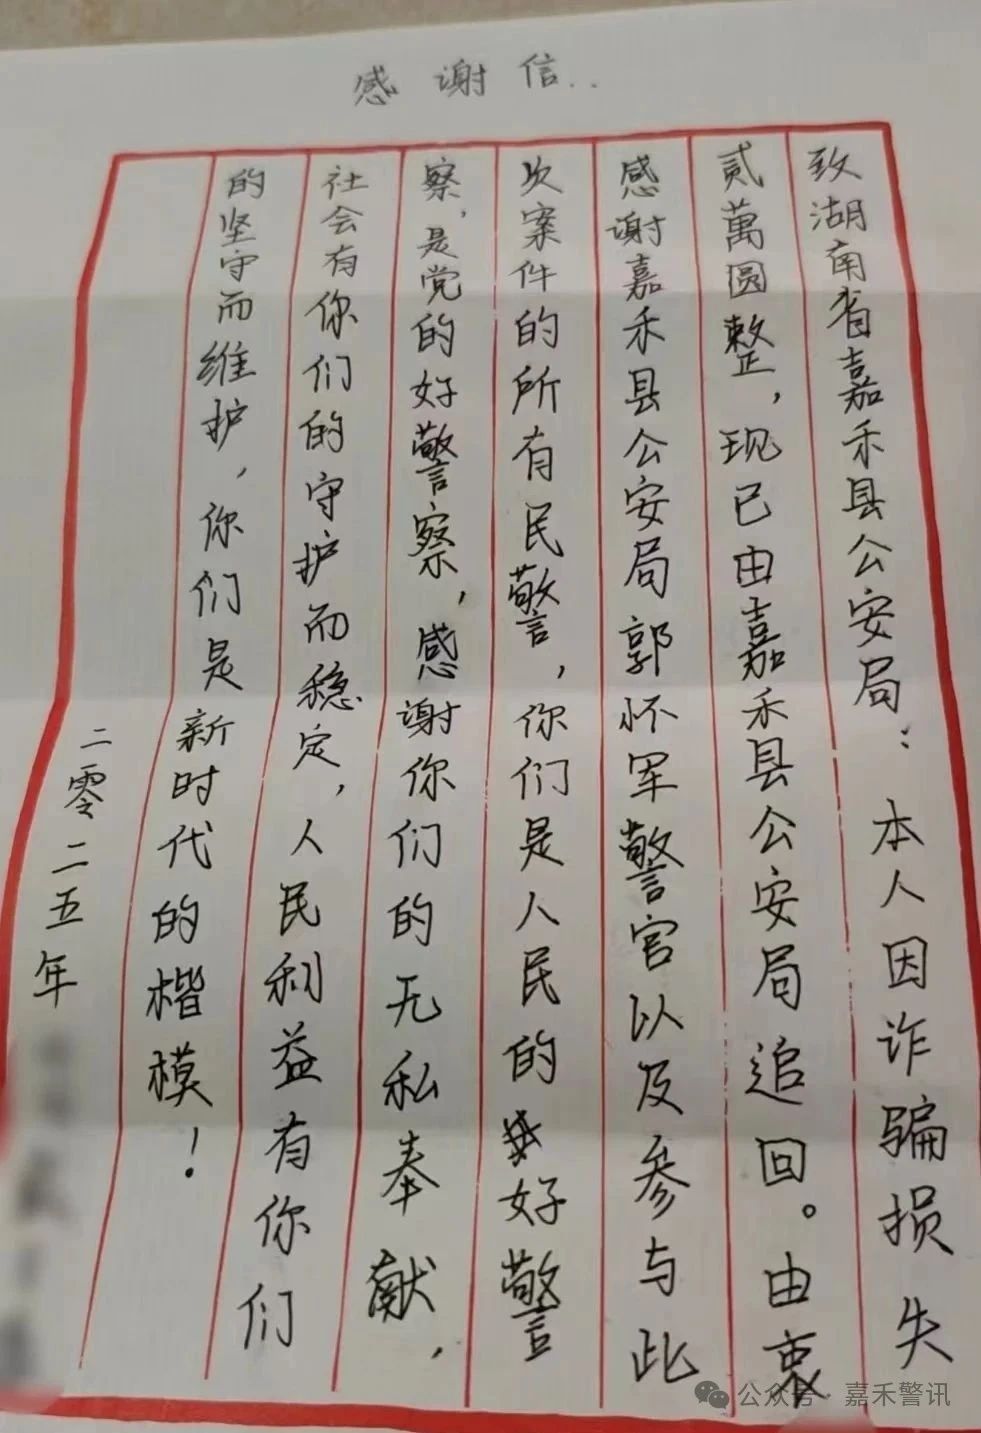 感谢信..
致湖南省嘉禾县公安局：本人因诈骗损失
贰萬圆整，现已由嘉禾县公安局追回。由衷
感谢嘉禾县公安局郭怀军警官以及参与此
次案件的所有民警，你们是人民的好警
察，是党的好警察，感谢你们的无私奉献，
社会有你们的守护而稳定，人民利益有你们
的坚守而维护，你们是新时代的楷模！
二零二五年
公众号·嘉禾警讯